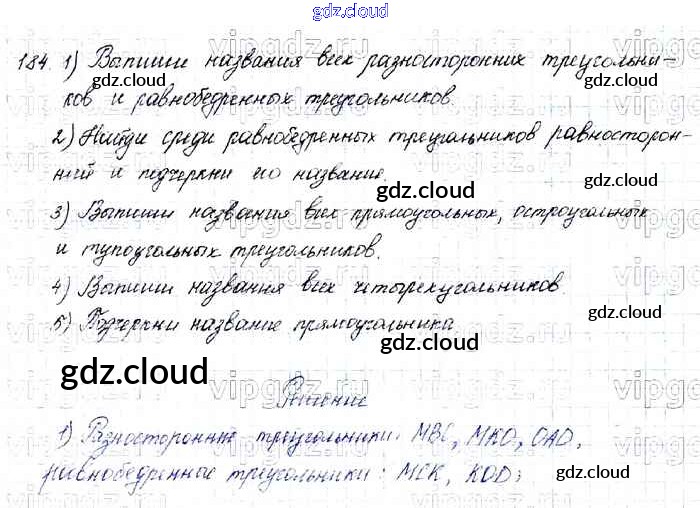 gdz.cloud
184. 1) Выпиши названия всех разносторонних треугольни-
ков и равнобедренных треугольников.
2) Найди среди равнобедренных треугольников равносторон-
ний и подчеркни его название.
3) Выпиши названия всех прямоугольных, остроугольных
и тупоугольных треугольников.
4) Выпиши названия всех четырехугольников.
5) Подчеркни название прямоугольника
Решение
1) Разносторонние треугольники: МВС, МКО, ОАD,
равнобедренные треугольники: МСК, КОD;